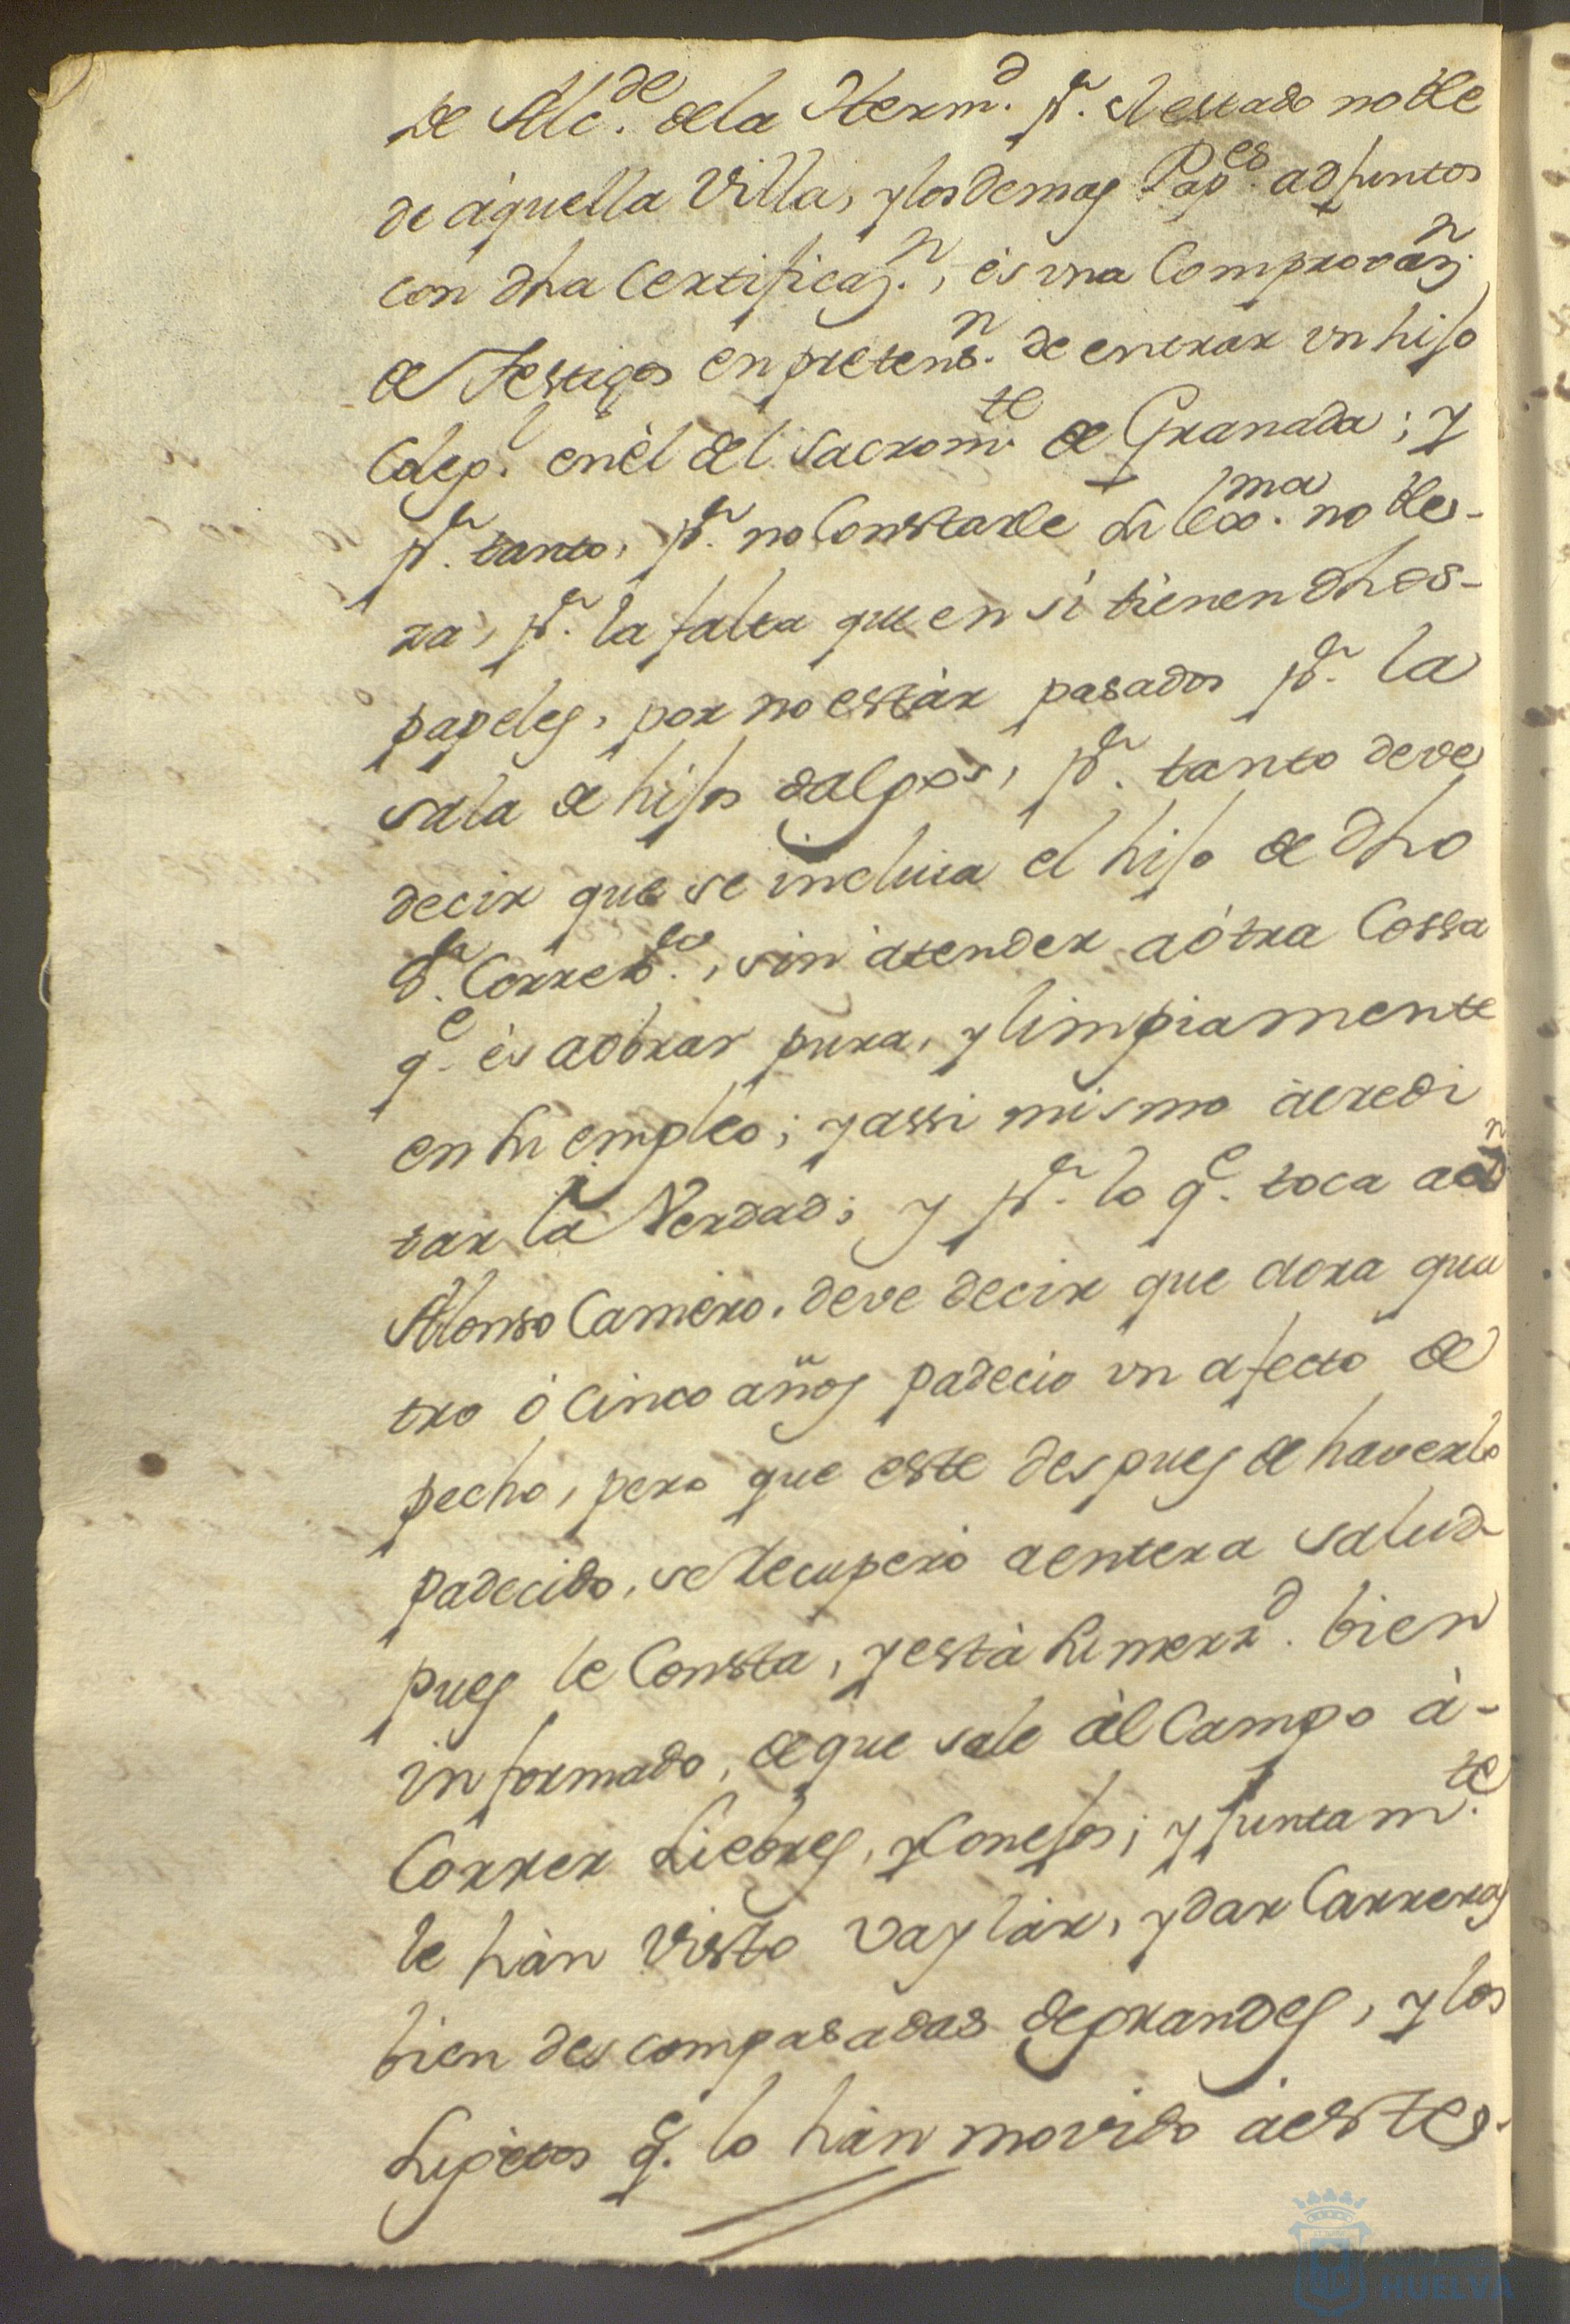 de Alc.de de la Herm.d p.r el estado noble
de àquella Villa, y los demas Pap.es adjuntos
con dha Certificaz.n, ès una Comprovaz.n
de Testigos en pretens.n de entrar un hijo
Coleg.l en èl del Sacrom.te de Granada; y
p.r tanto, p.r no Constarle su lexma noble-
za, p.r la falta que en sì tienen dhos-
papeles, por no estàr pasados p.r la
sala de hijos dalgos, p.r tanto deve
decir que se incluia el hijo de dho
S.r Correx.or, sin atender a òtra Cossa
q.e ès aobrar pura, y limpiamente
en su empleo; y assi mismo àcredi
tar la Verdad; y p.r lo q.e toca a D.n
Alonso Camero. deve decir que aora qua
tro ò Cinco años padeciò un afecto de
pecho, pero que este despues de haverlo
padecido, se recuperò a entera salud
pues le Consta, y està su merz.d bien
informado, de que sale àl Campo à-
Correr Liebres, y Conejos; y juntam.te
le hàn Visto vaylàr, y dar Carreras
bien descompasadas de grandes, y los
sugetos q.e lo hàn movido à estes-
HUELVA